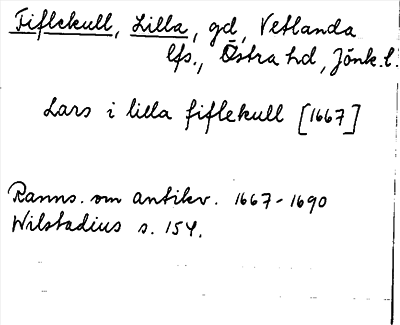 Fiflekull, Lilla, gd, Vetlanda
lfs., Östra hd, Jönk.l.
Lars i lilla fiflekull [1667]
Ranns. om antikv. 1667-1690
Wilstadius s. 154.